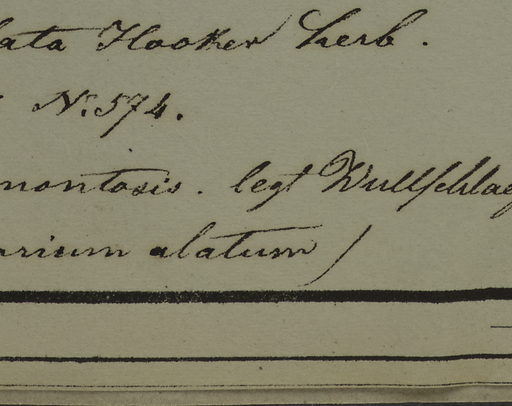 lata Hooker herb.
N: 574.
montosis. legt Wullschlae
arium alatum /